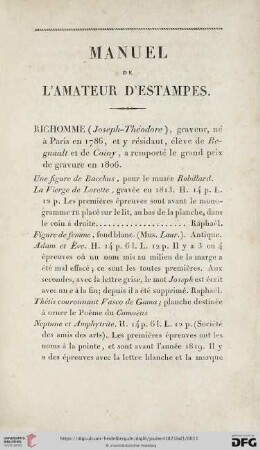 MANUEL
DE
L'AMATEUR D'ESTAMPES.
RICHOMME (Joseph-Théodore), graveur, né
à Paris en 1786, et y résidant, élève de Re-
gnault et de Coiny, a remporté le grand prix
de gravure en 1806.
Une figure de Bacchus, pour le musée Robillard.
La Vierge de Lorette, gravée en 1813. H. 14 p. L.
12 p. Les premières épreuves sont avant le mono-
gramme TR placé sur le lit, au bas de la planche, dans
le coin à droite.................... Raphaël.
Figure de femme, fond blanc. (Mus. Laur.). Antique.
Adam et Ève. H. 14 p. 6 l. L. 12 p. Il y a 3 ou 4
épreuves où un nom mis au milieu de la marge a
été mal effacé; ce sont les toutes premières. Aux
secondes, avec la lettre grise, le mot Joseph est écrit
avec un e à la fin; depuis il a été supprimé. Raphaël.
Thétis couronnant Vasco de Gama; planche destinée
à orner le Poème du Camoëns
Neptune et Amphytrite. H. 14p. 6 l. L. 12 p. (Société
des amis des arts). Les premières épreuves ont les
noms à la pointe, et sont avant l'année 1819. Il y
a des épreuves avec la lettre blanche et la marque
UNIVERSITÄTS-
BIBLIOTHEK
HEIDELBERG
© Universitätsbibliothek Heidelberg
gefördert durch die
DFG